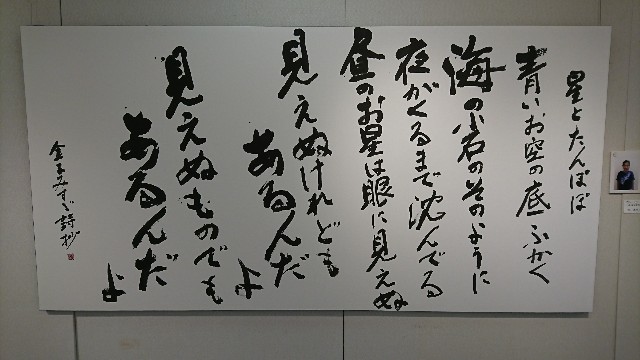 星とたんぽぽ
青いお空の底ふかく
海の小石のそのように
夜がくるまで沈んでる
昼のお星は眼に見えぬ
見えぬけれども
あるんだよ
見えぬものでも
あるんだよ
金子みすゞ詩抄